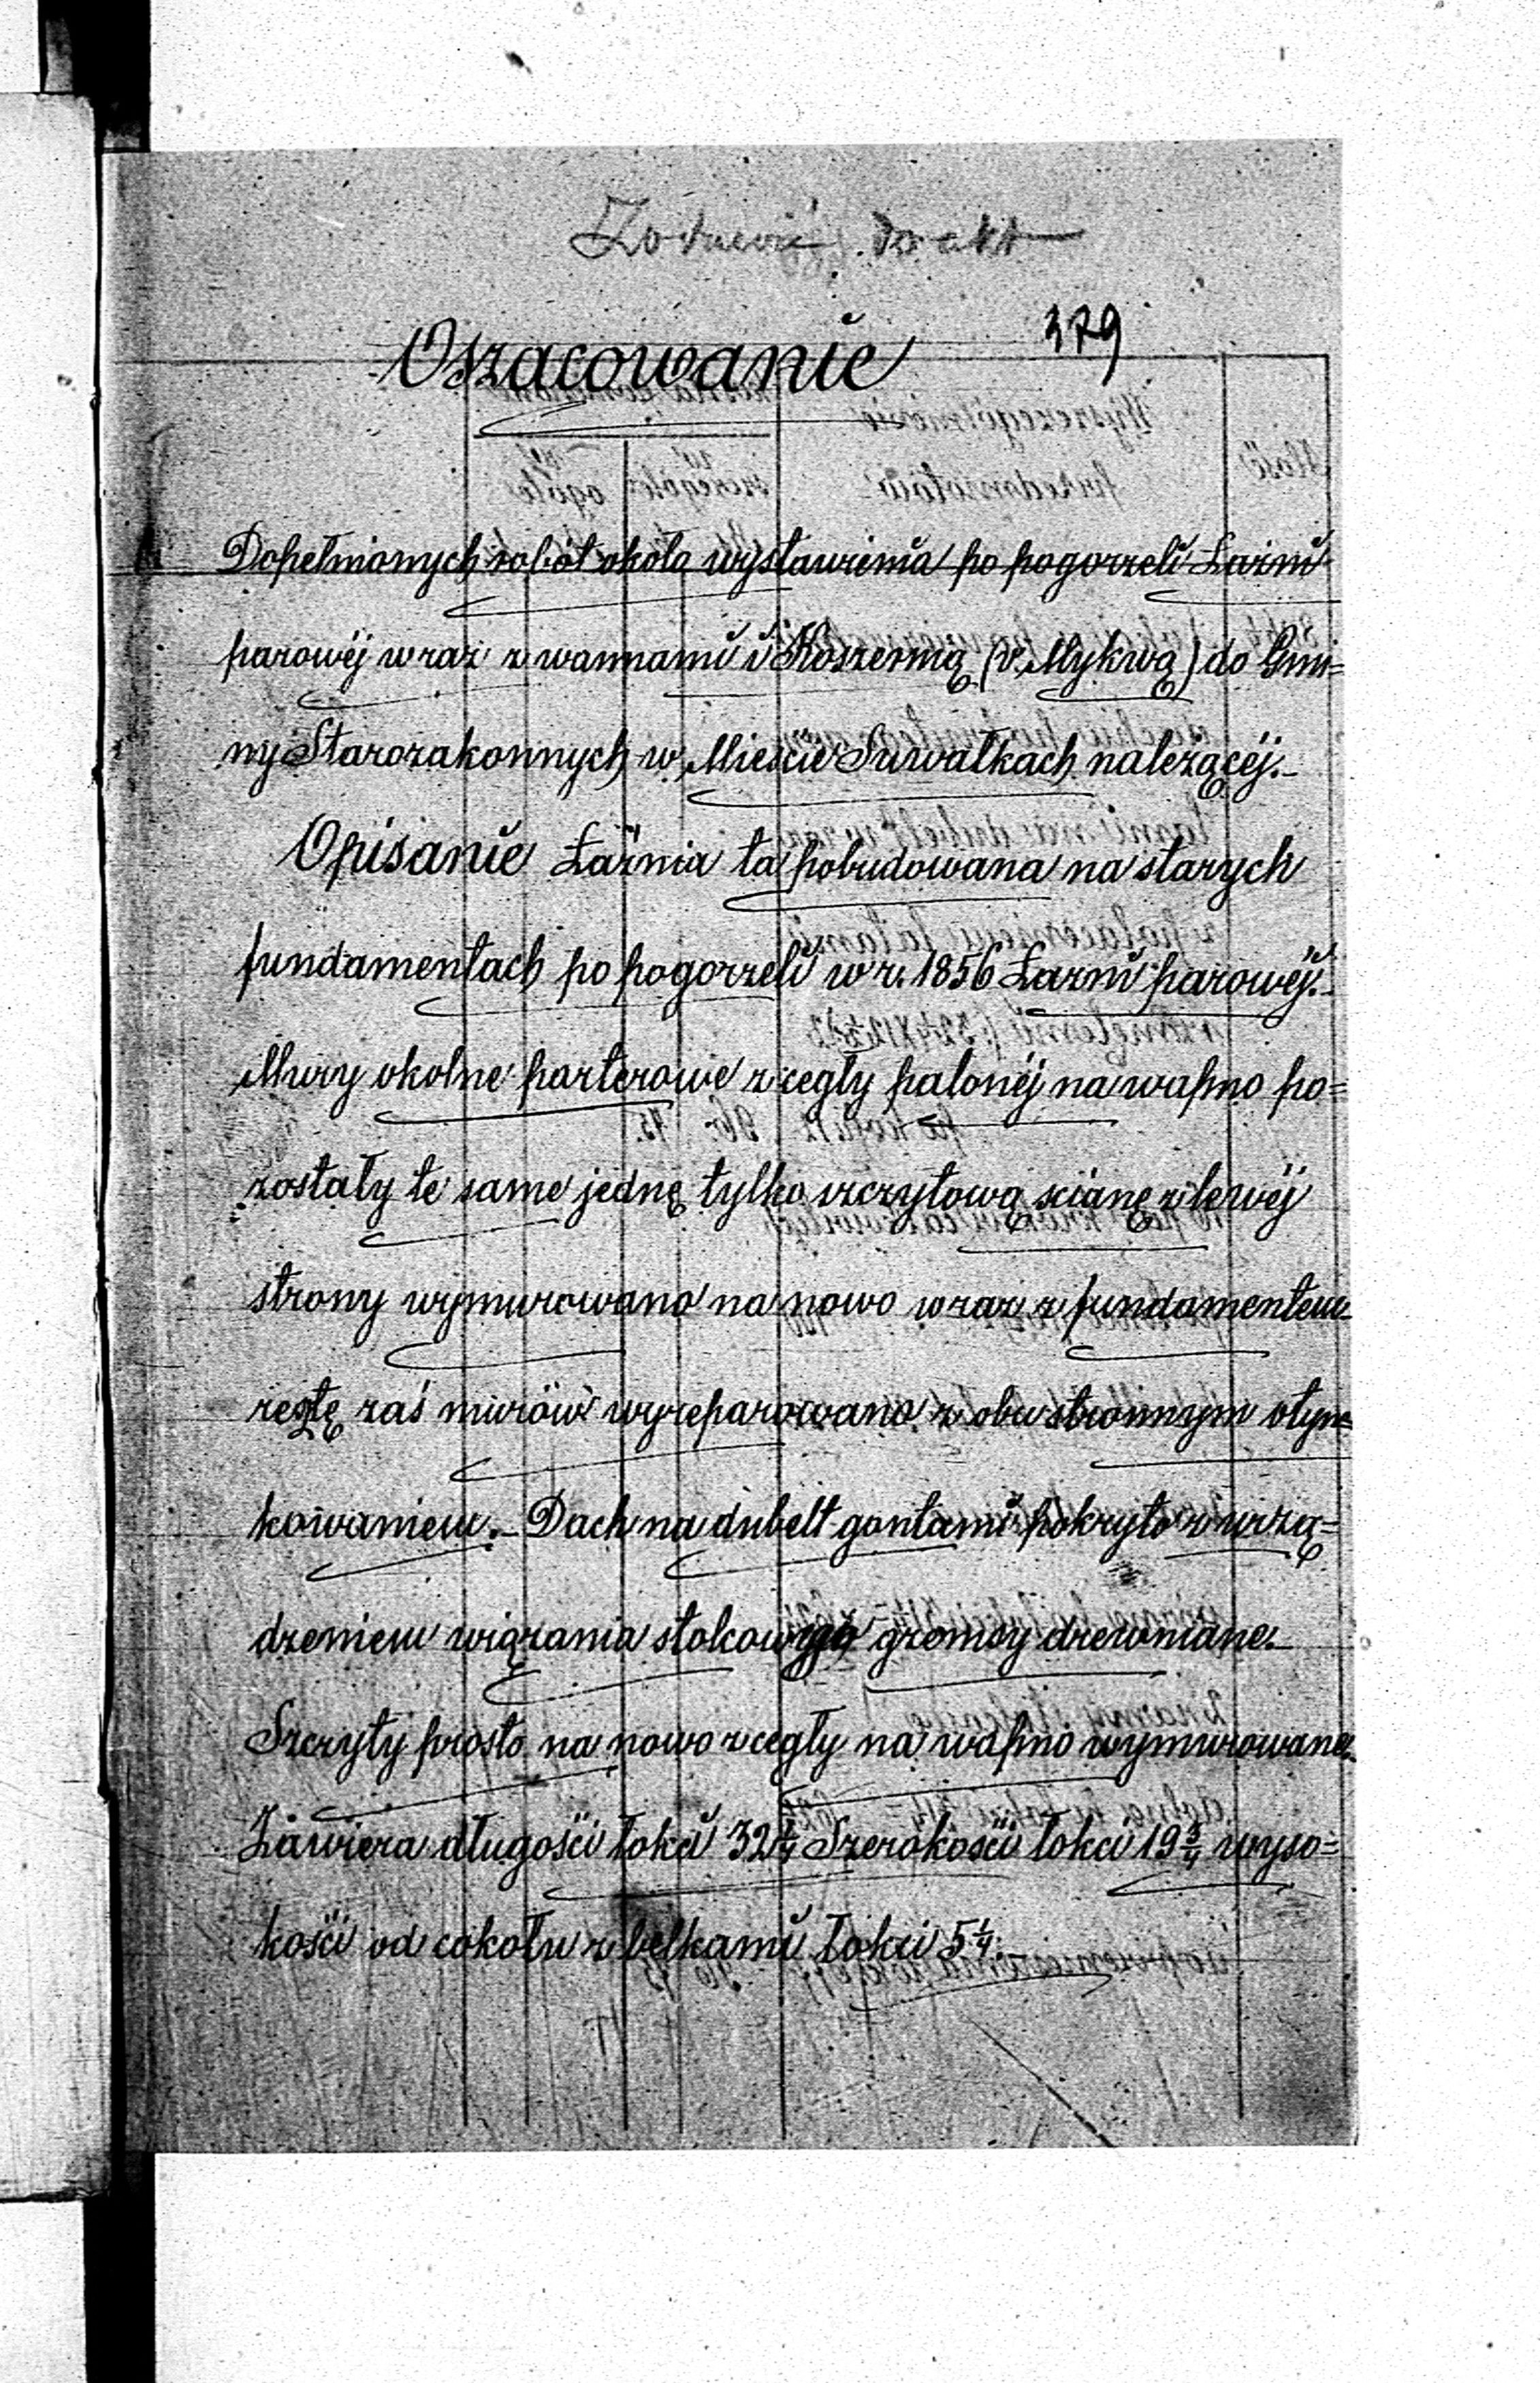 do akt
379
Oszacowanie
Dopełnionych robót około wystawienia po pogorzeli Łaźni
parowéj wraz z wannami i Koszernią (v. Mykwą) do Gmi=
ny Starozakonnych w Mieście Suwałkach należącéj.
Opisanie Łaźnia ta pobudowana na starych
fundamentach po pogorzeli w r. 1856 Łazni parowéj.
Mury okolne parterowe z cegły palonéj na wapno po=
zostały te same jednę tylko szczytową scianę z lewéj
strony wymurowano na nowo wraz z fundamentem
resztę zaś murów wyreparowano z obustronnym otyn=
kowaniem. Dach na dubelt gontami pokryto z urzą=
dzeniem wiązania stokowego gzemsy drewniane.
Szczyty prosto na nowo z cegły na wapno wymurowane.
Zawiera długości łokci 32 1/4 Szerokości łokci 19 3/4 wyso=
kości od cokołu z belkami łokci 5 1/4.